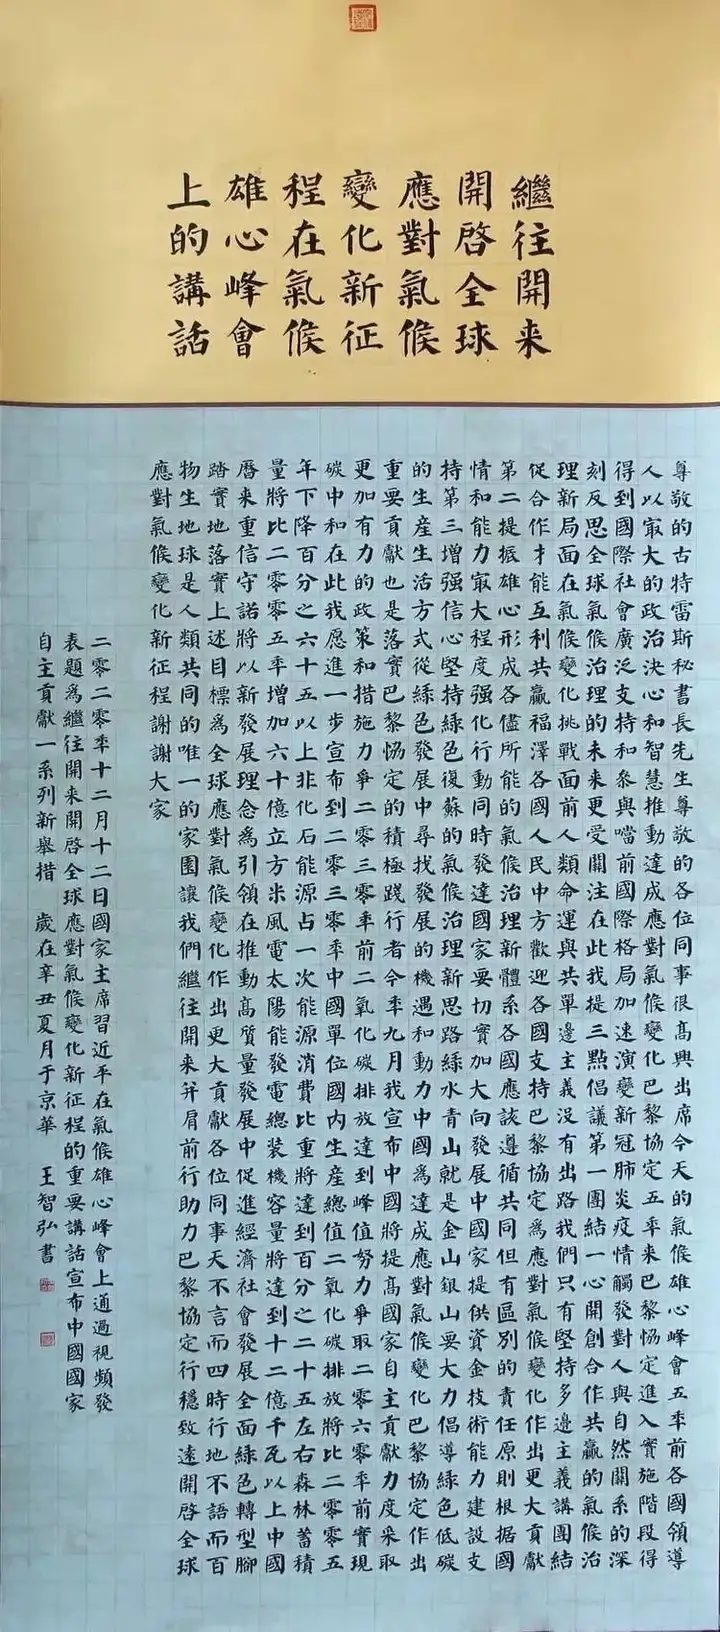 繼往開来
開啓全球
應對氣候
變化新征
程在氣候
雄心峰會
上的講話
尊敬的古特雷斯秘書長先生尊敬的各位同事很高興出席今天的氣候雄心峰會五年前各國領導
人以㝡大的政治決心和智慧推動達成應對氣候變化巴黎協定五年来巴黎協定進入實施階段得
得到國際社會廣泛支持和參與噹前國際格局加速演變新冠肺炎疫情觸發對人與自然関系的深
刻反思全球氣候治理的未来更受関注在此我提三點倡議第一團結一心開創合作共贏的氣候治
理新局面在氣候變化挑戰面前人類命運與共單邊主義没有出路我們只有堅持多邊主義講團結
促合作才能互利共贏福澤各國人民中方歡迎各國支持巴黎協定為應對氣候變化作出更大貢獻
第二提振雄心形成各儘所能的氣候治理新體系各國應該遵循共同但有區别的責任原則根据國
情和能力㝡大程度强化行動同時發達國家要切實加大向發展中國家提供資金技術能力建設支
持第三增强信心堅持緑色復蘇的氣候治理新思路緑水青山就是金山銀山要大力倡導緑色低碳
的生産生活方式從緑色發展中尋找發展的機遇和動力中國為達成應對氣候變化巴黎協定作出
重要貢獻也是落實巴黎協定的積極踐行者今年九月我宣布中國將提高國家自主貢獻力度采取
更加有力的政策和措施力爭二零三零年前二氧化碳排放達到峰值努力爭取二零六零年前實現
碳中和在此我愿進一步宣布到二零三零年中國單位國内生産總值二氧化碳排放將比二零零五
年下降百分之六十五以上非化石能源占一次能源消費比重將達到百分之二十五左右森林蓄積
量將比二零零五年增加六十億立方米風電太陽能發電總装機容量將達到十二億千瓦以上中國
曆来重信守諾將以新發展理念為引領在推動高質量發展中促進經濟社會發展全面緑色轉型腳
踏實地落實上述目標為全球應對氣候變化作出更大貢獻各位同事天不言而四時行地不語而百
物生地球是人類共同的唯一的家園讓我們繼往開来并肩前行助力巴黎協定行穩致遠開啓全球
應對氣候變化新征程謝謝大家
二零二零年十二月十二日國家主席習近平在氣候雄心峰會上通過視頻發
表題為繼往開来開啓全球應對氣候變化新征程的重要講話宣布中國國家
自主貢獻一系列新舉措 歲在辛丑夏月于京華 王智弘書